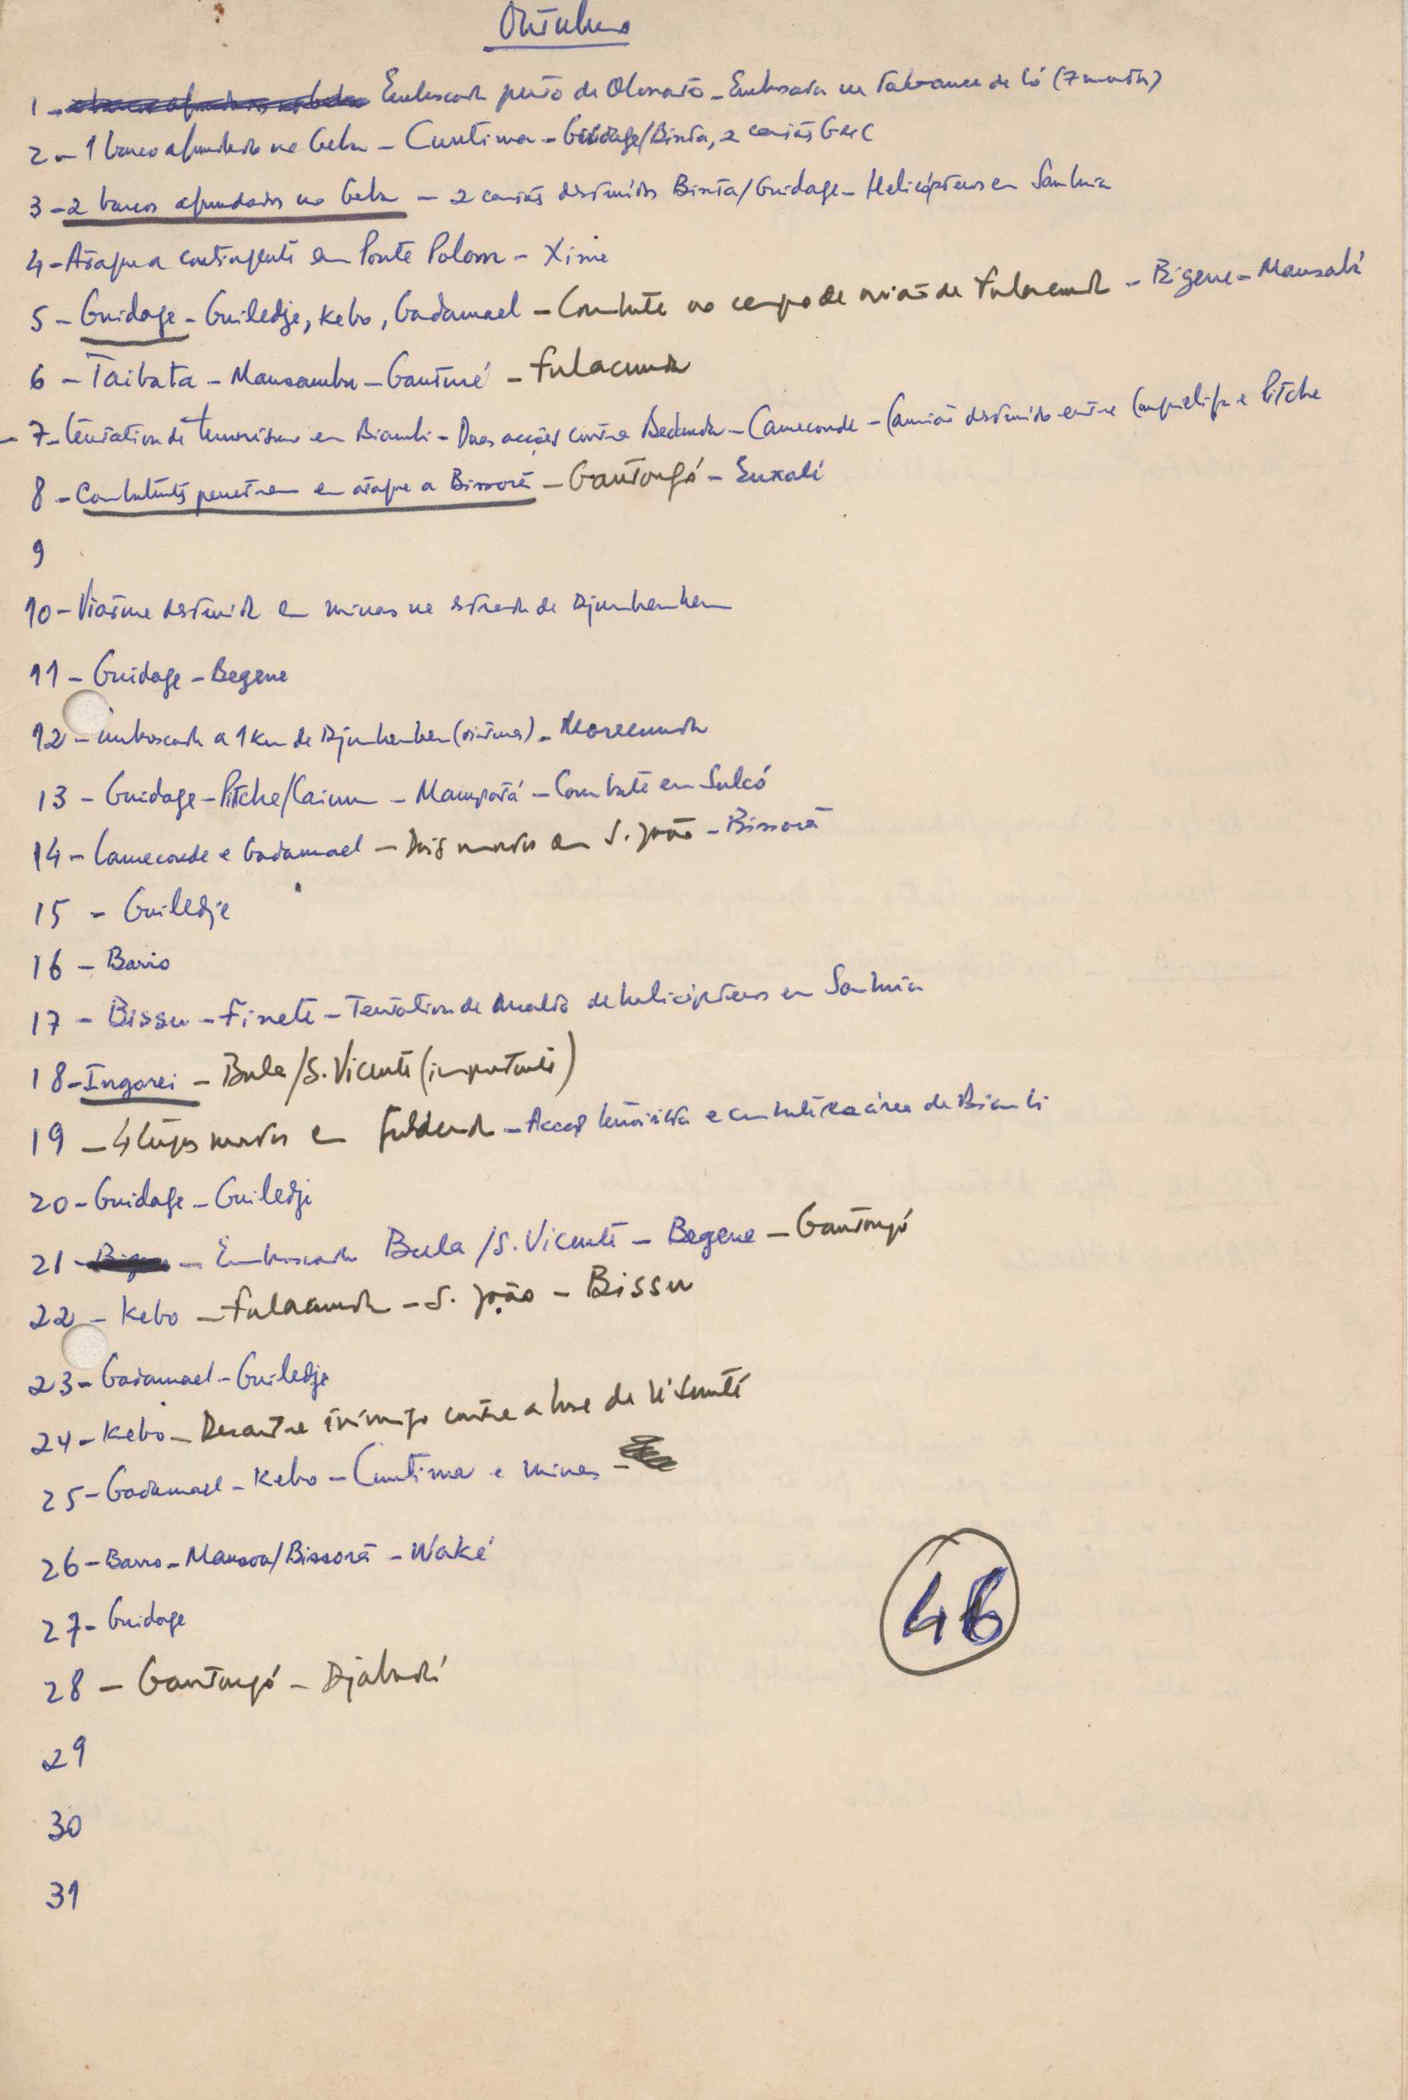 Outubro
1 - Emboscada perto de Olossato - Emboscada na tabanca de Có (7 mortos)
2 - 1 barco afundado no Geba - Cuntima - Guidage/Binta, 2 camiões GMC
3 - 2 barcos afundados no Geba - 2 camiões destruídos Binta/Guidage - Helicópteros em Sambuia
4 - Ataque a contingente em Ponte Polom - Xime
5 - Guidage - Guiledje, Kebo, Gadamael - Combate no campo de aviação de Fulacunda - Bigene - Mansabá
6 - Taibata - Mansambu - Ganturé - Fulacunda
- 7 - tentation de terrorismo em Biambi - Duas acções contra Bedanda - Cameconde - Camião destruído entre Canquelifa e Pitche
8 - Combatentes penetram em ataque a Bissorã - Gantongó - Enxalé
9
10 - Viatura destruída em minas na estrada de Djumbembem
11 - Guidage - Begene
12 - emboscada a 1 km de Djumbembem (viaturas) - Morecunda
13 - Guidage - Pitche/Caium - Mampatá - Combate em Sulcó
14 - Cameconde e Gadamael - Dois mortos em S. João - Bissorã
15 - Guiledje
16 - Barro
17 - Bissu - Finete - Tentation de assalto de helicópteros em Sambuia
18 - Ingorei - Bula/S. Vicente (importante)
19 - 4 tugas mortos em Fulacunda - Acção terrorista e combate na área de Biambi
20 - Guidage - Guiledje
21 - - Emboscada Bula/S. Vicente - Begene - Gantongó
22 - Kebo - Fulacunda - S. João - Bissu
23 - Gadamael - Guiledje
24 - Kebo - Desastre inimigo contra a base de
25 - Gadamael - Kebo - Cuntima e minas -
26 - Barro - Mansoa/Bissorã - Waké
27 - Guidage
28 - Gantongó - Djabadá
29
30
31
46